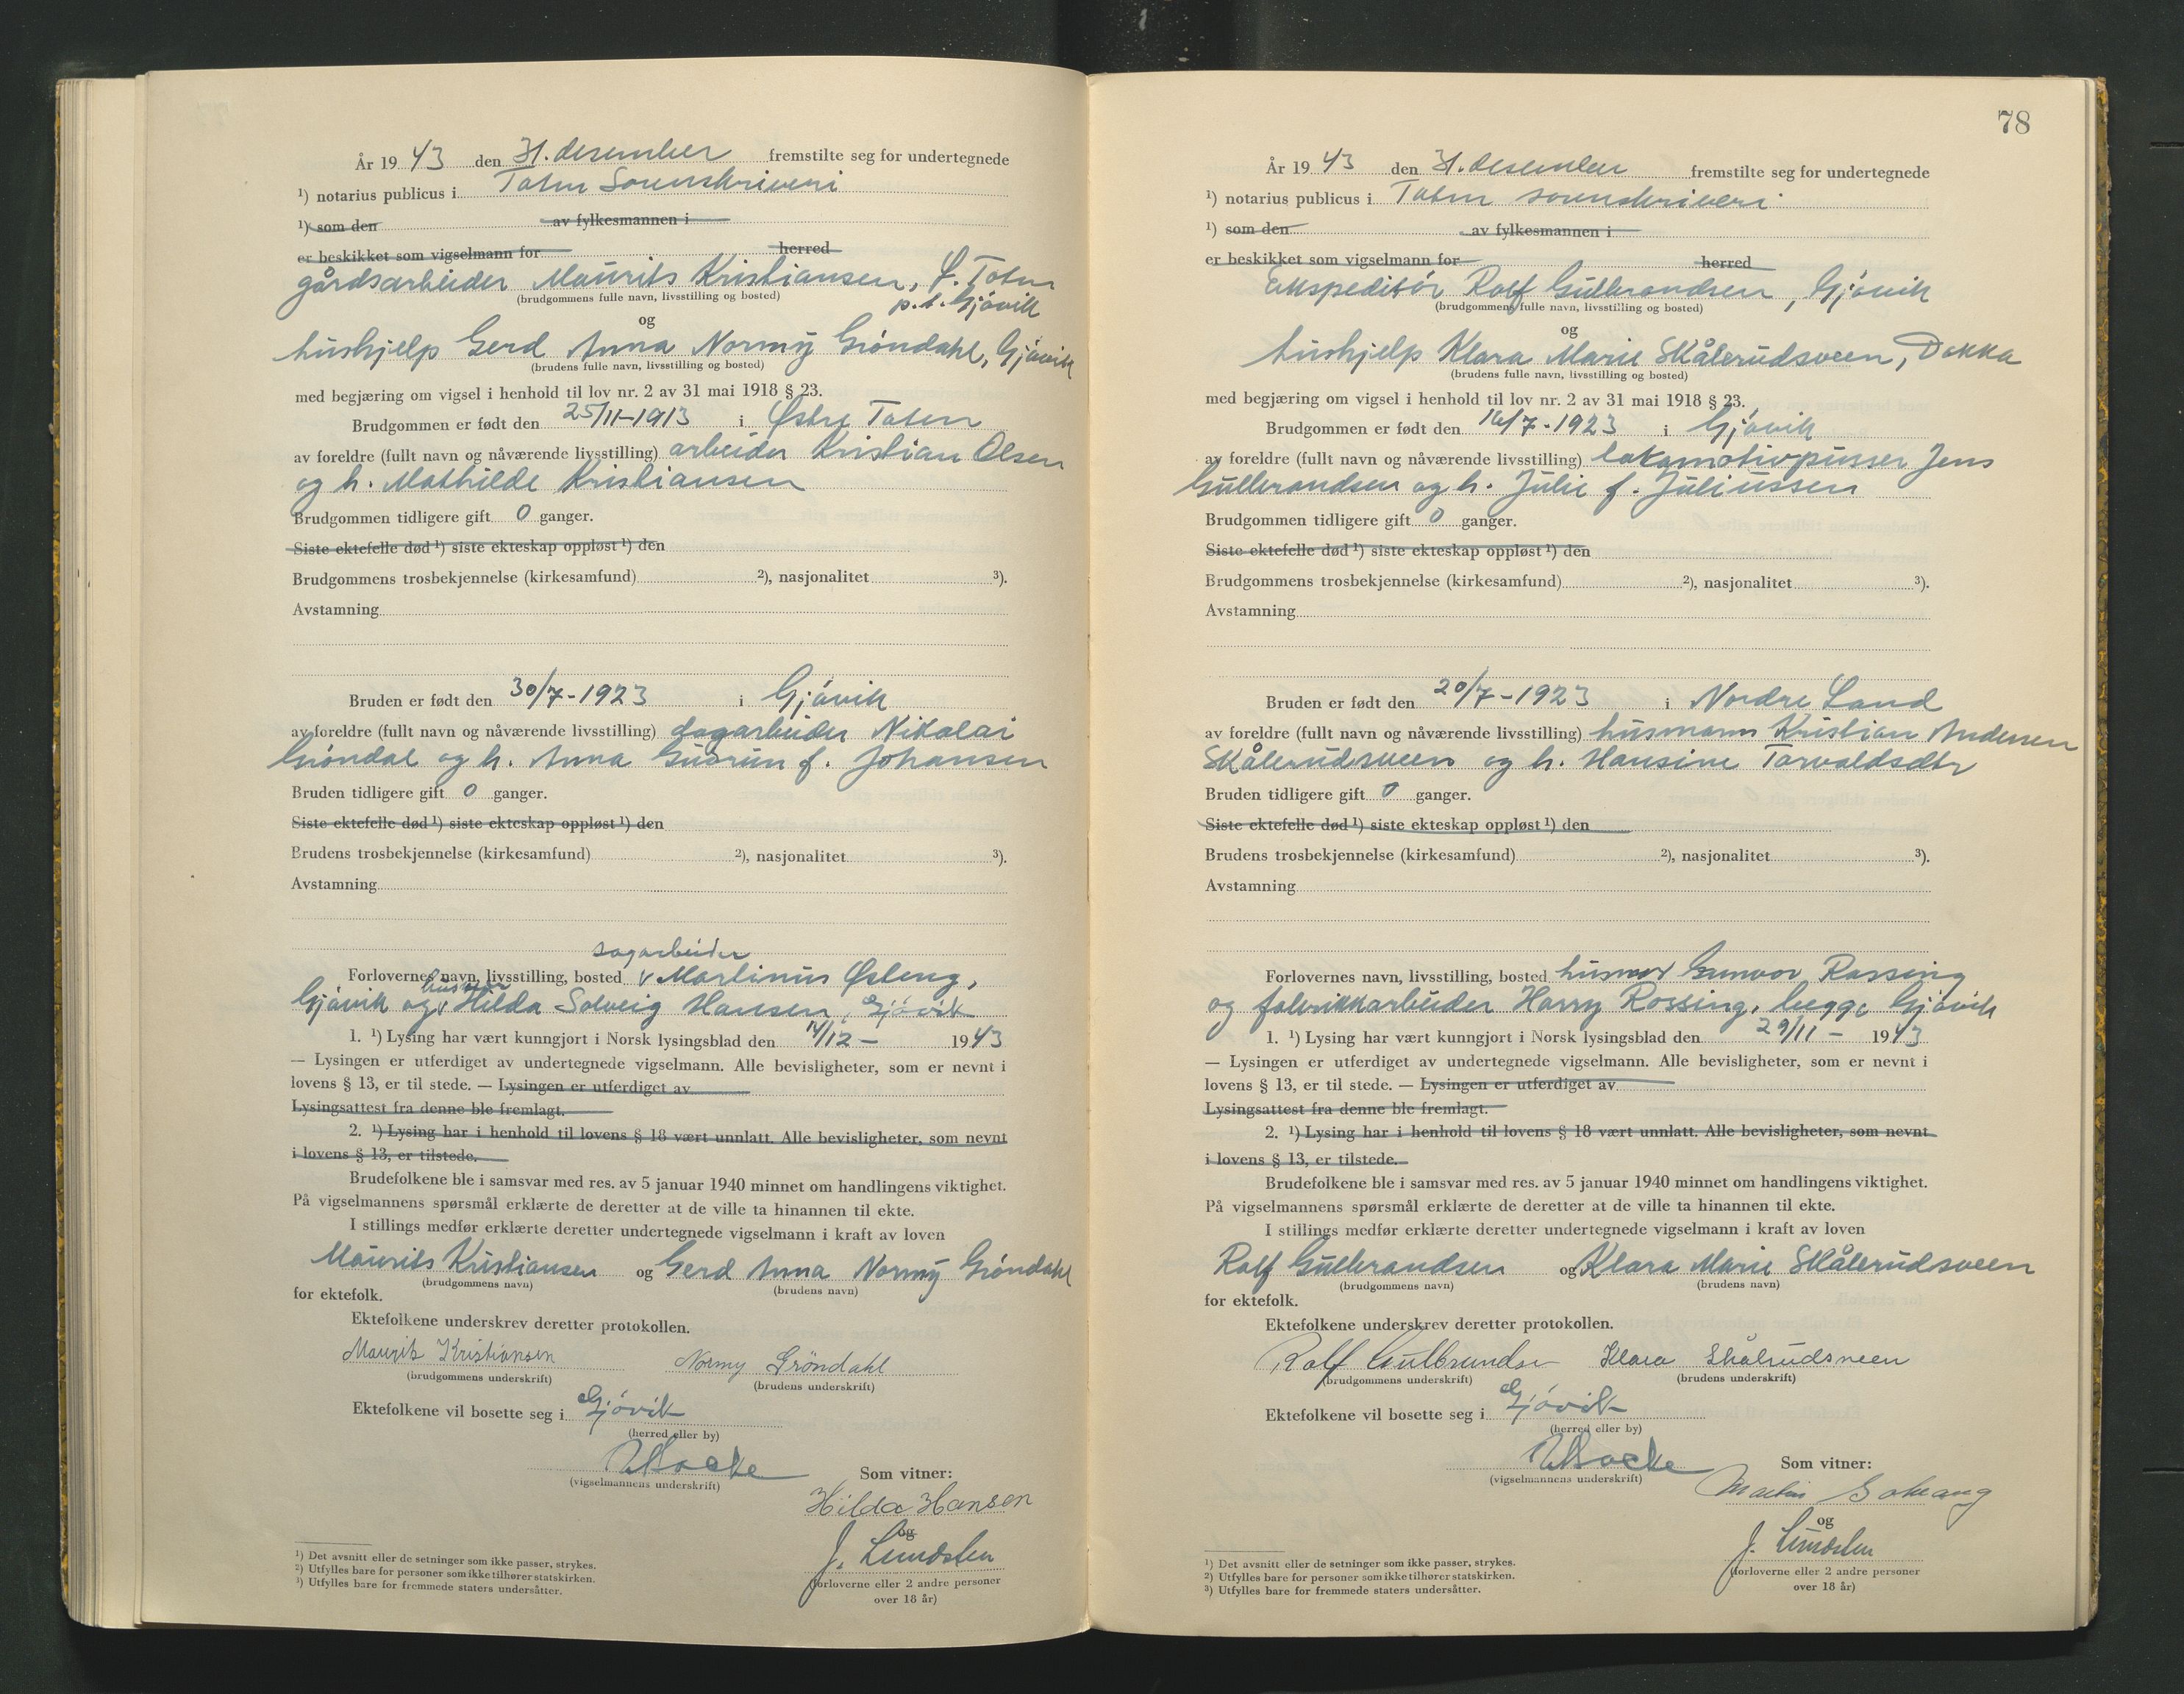 År 19 43 den 31. desember fremstilte seg for undertegnede
¹) notarius publicus i Toten Sorenskriveri
¹) som den av fylkesmannen i
er beskikket som vigselmann for herred
gårdsarbeider Maurits Kristiansen, Ø. Toten
(brudgommens fulle navn, livsstilling og bosted) p.t. Gjøvik
og
hushjelp Gerd Anna Normy Grøndahl, Gjøvik
(brudens fulle navn, livsstilling og bosted)
med begjæring om vigsel i henhold til lov nr. 2 av 31 mai 1918 § 23.
Brudgommen er født den 25/11-1913 i Østre Toten
av foreldre (fullt navn og nåværende livsstilling) arbeider Kristian Olsen
og h. Mathilde Kristiansen
Brudgommen tidligere gift 0 ganger.
Siste ektefelle død ¹) siste ekteskap oppløst ¹) den
Brudgommens trosbekjennelse (kirkesamfund) ²), nasjonalitet ³).
Avstamning
Bruden er født den 30/7-1923 i Gjøvik
av foreldre (fullt navn og nåværende livsstilling) dagarbeider Nikolai
Grøndal og h. Anna Gudrun f. Johansen
Bruden tidligere gift 0 ganger.
Siste ektefelle død ¹) siste ekteskap oppløst ¹) den
Brudens trosbekjennelse (kirkesamfund) ²), nasjonalitet ³).
Avstamning
sagarbeider
Forlovernes navn, livsstilling, bosted v Martinus Østeng,
husmor
Gjøvik og v Hilda Solveig Hansen, Gjøvik
1. ¹) Lysing har vært kunngjort i Norsk lysingsblad den 14/12 - 1943
— Lysingen er utferdiget av undertegnede vigselmann. Alle bevisligheter, som er nevnt i
lovens § 13, er til stede. — Lysingen er utferdiget av
Lysingsattest fra denne ble fremlagt.
2. ¹) Lysing har i henhold til lovens § 18 vært unnlatt. Alle bevisligheter, som nevnt
i lovens § 13, er tilstede.
Brudefolkene ble i samsvar med res. av 5 januar 1940 minnet om handlingens viktighet.
På vigselmannens spørsmål erklærte de deretter at de ville ta hinannen til ekte.
I stillings medfør erklærte deretter undertegnede vigselmann i kraft av loven
Maurits Kristiansen og Gerd Anna Normy Grøndahl
(brudgommens navn) (brudens navn)
for ektefolk.
Ektefolkene underskrev deretter protokollen.
Maurits Kristiansen Normy Grøndahl
(brudgommens underskrift) (brudens underskrift)
Ektefolkene vil bosette seg i Gjøvik
(herred eller by)
(vigselmannens underskrift) Som vitner:
Hilda Hansen
og
J. Lundsten
(forloverne eller 2 andre personer
over 18 år)
¹) Det avsnitt eller de setninger som ikke passer, strykes.
²) Utfylles bare for personer som ikke tilhører statskirken.
³) Utfylles bare for fremmede staters undersåtter.
78
År 19 43 den 31. desember fremstilte seg for undertegnede
¹) notarius publicus i Toten sorenskriveri
¹) som den av fylkesmannen i
er beskikket som vigselmann for herred
Ekspeditør Rolf Gulbrandsen, Gjøvik
(brudgommens fulle navn, livsstilling og bosted)
og
hushjelp Klara Marie Skålerudsveen, Dokka
(brudens fulle navn, livsstilling og bosted)
med begjæring om vigsel i henhold til lov nr. 2 av 31 mai 1918 § 23.
Brudgommen er født den 16/7-1923 i Gjøvik
av foreldre (fullt navn og nåværende livsstilling) lokomotivpusser Jens
Gulbrandsen og h. Julie f. Juliussen
Brudgommen tidligere gift 0 ganger.
Siste ektefelle død ¹) siste ekteskap oppløst ¹) den
Brudgommens trosbekjennelse (kirkesamfund) ²), nasjonalitet ³).
Avstamning
Bruden er født den 20/7-1923 i Nordre Land
av foreldre (fullt navn og nåværende livsstilling) husmann Kristian Andersen
Skålerudsveen og h. Hansine Torvaldsdtr
Bruden tidligere gift 0 ganger.
Siste ektefelle død ¹) siste ekteskap oppløst ¹) den
Brudens trosbekjennelse (kirkesamfund) ²), nasjonalitet ³).
Avstamning
Forlovernes navn, livsstilling, bosted husmor Gunvor Rossing
og fabrikkarbeider Harry Rossing, begge Gjøvik
1. ¹) Lysing har vært kunngjort i Norsk lysingsblad den 29/11 - 1943
— Lysingen er utferdiget av undertegnede vigselmann. Alle bevisligheter, som er nevnt i
lovens § 13, er til stede. — Lysingen er utferdiget av
Lysingsattest fra denne ble fremlagt.
2. ¹) Lysing har i henhold til lovens § 18 vært unnlatt. Alle bevisligheter, som nevnt
i lovens § 13, er tilstede.
Brudefolkene ble i samsvar med res. av 5 januar 1940 minnet om handlingens viktighet.
På vigselmannens spørsmål erklærte de deretter at de ville ta hinannen til ekte.
I stillings medfør erklærte deretter undertegnede vigselmann i kraft av loven
Rolf Gulbrandsen og Klara Marie Skålerudsveen
(brudgommens navn) (brudens navn)
for ektefolk.
Ektefolkene underskrev deretter protokollen.
Rolf Gulbrandsen Klara Skålrudsveen
(brudgommens underskrift) (brudens underskrift)
Ektefolkene vil bosette seg i Gjøvik
(herred eller by)
(vigselmannens underskrift) Som vitner:
og
J. Lundsten
(forloverne eller 2 andre personer
over 18 år)
¹) Det avsnitt eller de setninger som ikke passer, strykes.
²) Utfylles bare for personer som ikke tilhører statskirken.
³) Utfylles bare for fremmede staters undersåtter.